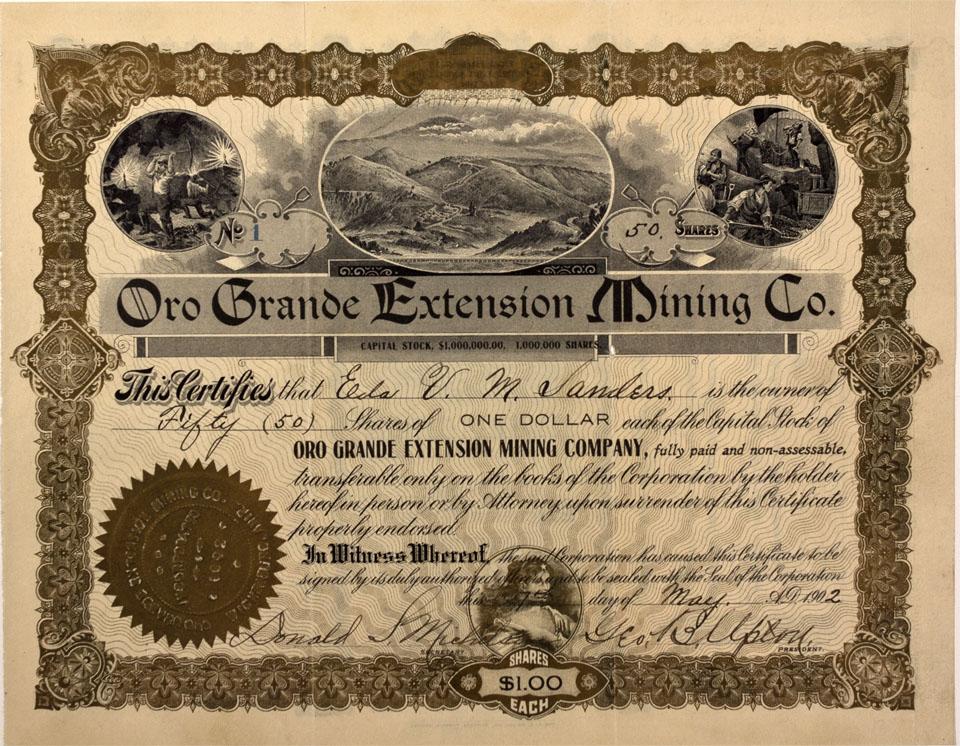 No 1
50. SHARES
Oro Grande Extension Mining Co.
CAPITAL STOCK, $1,000,000.00. 1,000,000 SHARES.
This Certifies that V. M. Sanders. is the owner of
Fifty (50) Shares of ONE DOLLAR each of the Capital Stock of
ORO GRANDE EXTENSION MINING COMPANY, fully paid and non-assessable,
transferable only on the books of the Corporation by the holder
hereof in person or by Attorney upon surrender of this Certificate
properly endorsed.
In Witness Whereof, the said Corporation has caused this Certificate to be
signed by its duly authorized officers and to be sealed with the Seal of the Corporation
this day of May. A.D. 1902
MINING CO.
Donald S. Geo. B. Upton.
SECRETARY PRESIDENT.
SHARES
$1.00
EACH